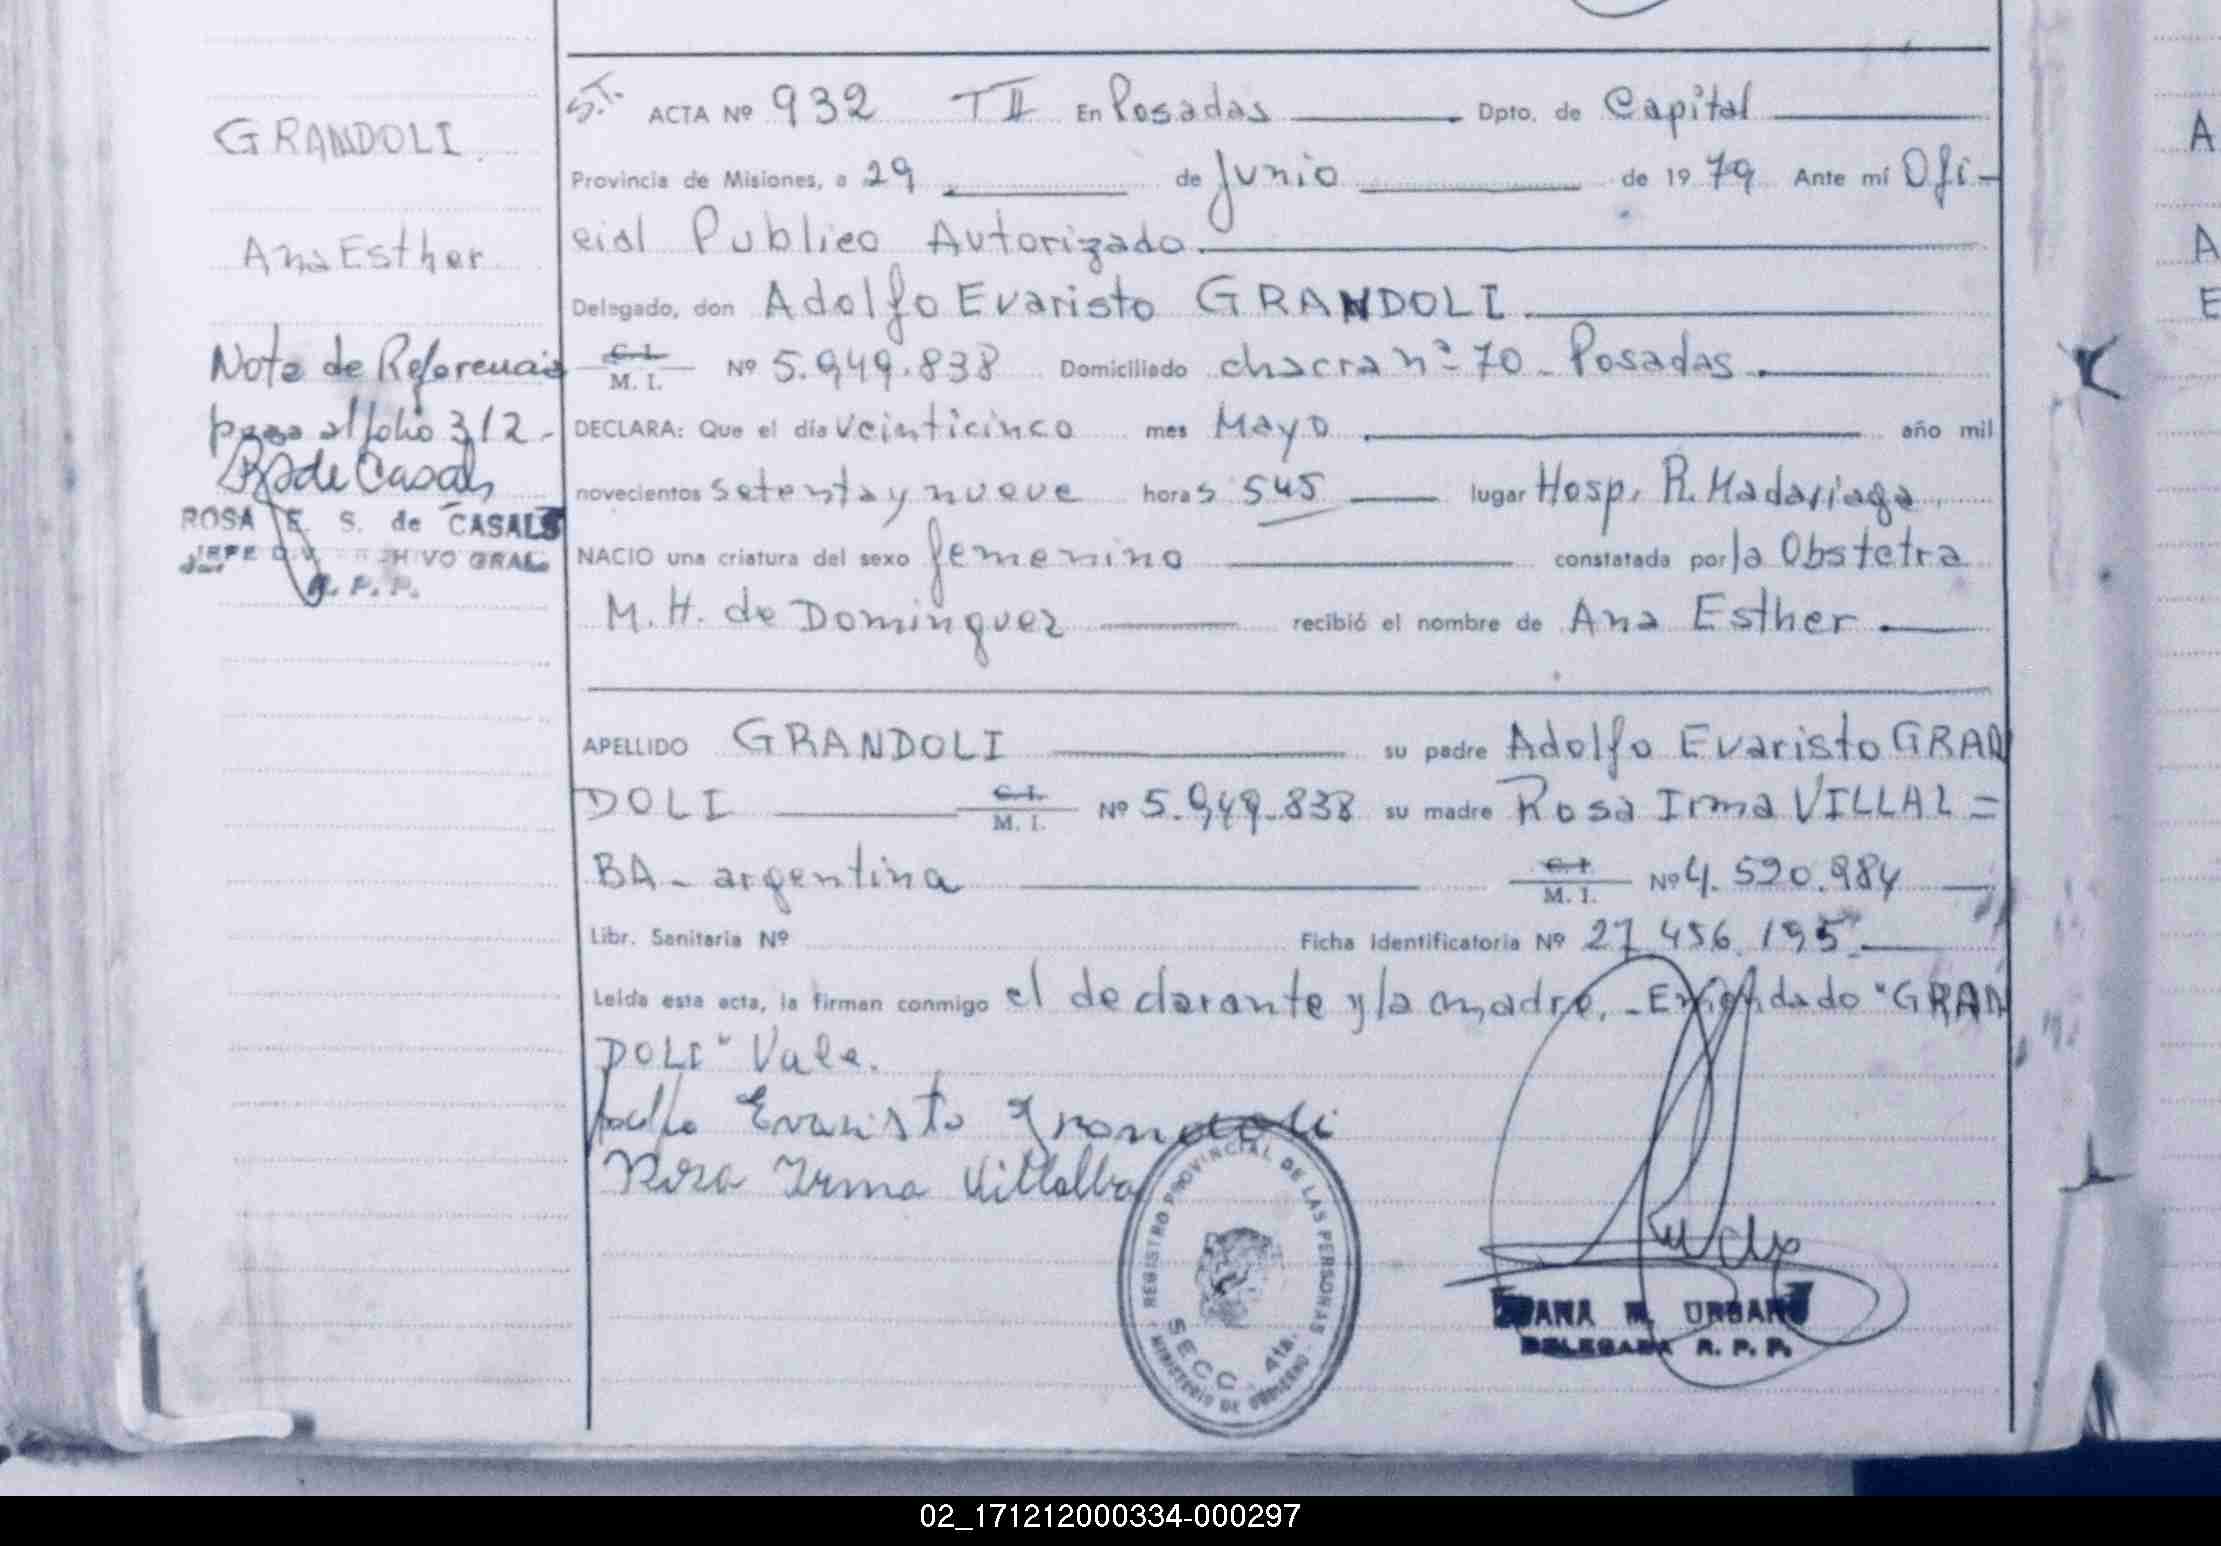 GRANDOLI
Ana Esther
Nota de Referencia
pasa al folio 312.-
RS de Casals
ROSA E. S. de CASALS
JEFE DIV. ARCHIVO GRAL.
R. P. P.
S.T. ACTA Nº 932 T II En Posadas Dpto. de Capital
Provincia de Misiones, a 29 de Junio de 1979 Ante mí Ofi-
cial Publico Autorizado.
Delegado, don Adolfo Evaristo GRANDOLI.
C. I. M. I. Nº 5.949.838 Domiciliado chacra nº 70 - Posadas.
DECLARA: Que el día veinticinco mes Mayo año mil
novecientos setenta y nueve horas 545 lugar Hosp. R. Madariaga
NACIO una criatura del sexo femenino constatada por la Obstetra
M. H. de Dominguez recibió el nombre de Ana Esther
APELLIDO GRANDOLI su padre Adolfo Evaristo GRAN
DOLI C. I. M. I. Nº 5.949.838 su madre Rosa Irma VILLAL=
BA - argentina C. I. M. I. Nº 4.590.984
Libr. Sanitaria Nº Ficha Identificatoria Nº 27 456.195
Leída esta acta, la firman conmigo el declarante y la madre. - Enmendado "GRAN
DOLI" Vale.
Adolfo Evaristo Grandoli
Rosa Irma Villalba
REGISTRO PROVINCIAL DE LAS PERSONAS
SECC. 4ta.
MINISTERIO DE GOBIERNO
JUANA M. URBANO
DELEGADA R. P. P.
02_171212000334-000297